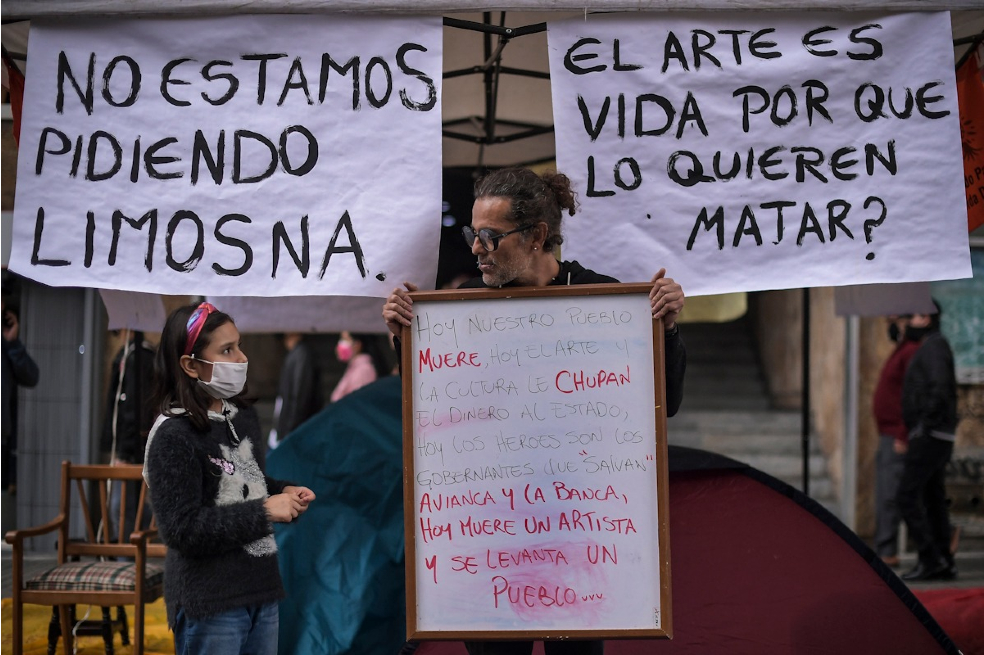 NO ESTAMOS
PIDIENDO
LIMOSNA.
EL ARTE ES
VIDA POR QUE
LO QUIEREN
MATAR?
HOY NUESTRO PUEBLO
MUERE, HOY EL ARTE Y
LA CULTURA LE CHUPAN
EL DINERO AL ESTADO,
HOY LOS HEROES SON LOS
GOBERNANTES QUE "SALVAN"
AVIANCA Y LA BANCA,
HOY MUERE UN ARTISTA
Y SE LEVANTA UN
PUEBLO...